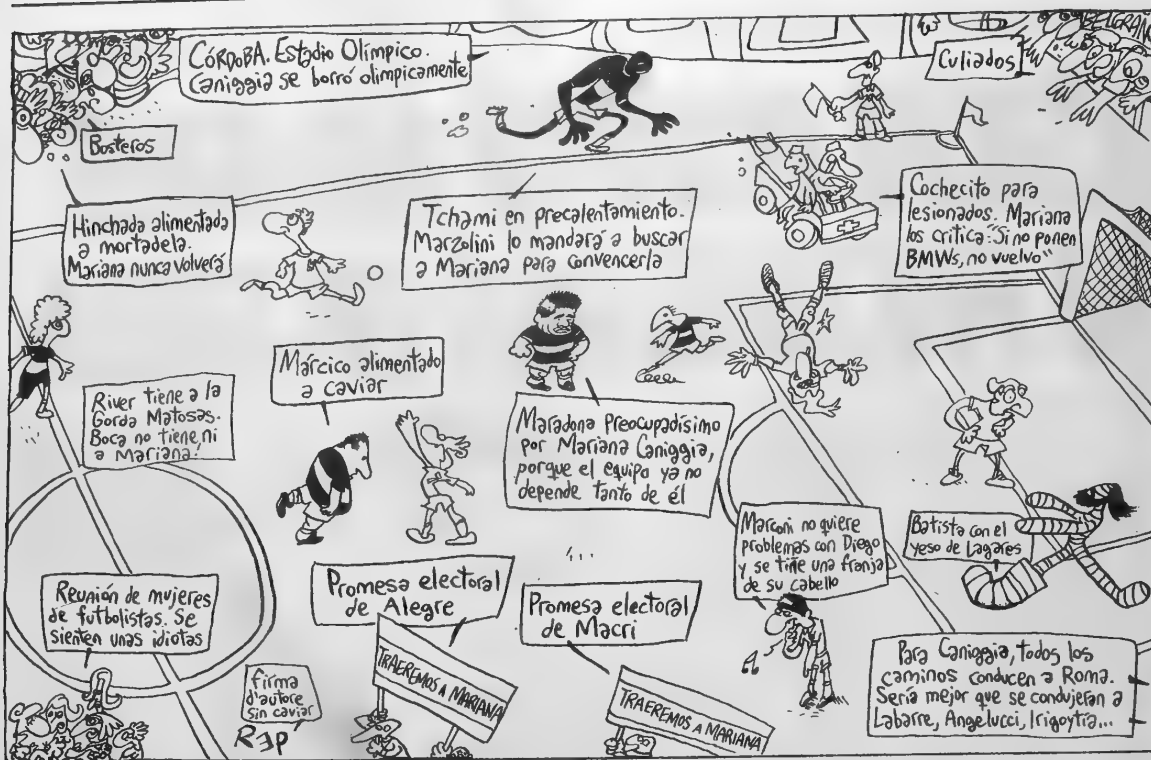 CÓRDOBA. Estadio Olímpico.
Caniggia se borró olimpicamente
BELGRANO
Culiados
Bosteros
Hinchada alimentada
a mortadela.
Mariana nunca volverá
Tchami en precalentamiento.
Marzolini lo mandará a buscar
a Mariana para convencerla
Cochecito para
lesionados. Mariana
los critica: "Si no ponen
BMWs, no vuelvo"
River tiene a la
Gorda Matosas.
Boca no tiene ni
a Mariana!
Márcico alimentado
a caviar
Maradona preocupadísimo
por Mariana Caniggia,
porque el equipo ya no
depende tanto de él
Marconi no quiere
problemas con Diego
y se tiñe una franja
de su cabello
Batista con el
yeso de Lagares
Reunión de mujeres
de futbolistas. Se
sienten unas idiotas
firma
d'autore
sin caviar
REP
Promesa electoral
de Alegre
TRAEREMOS A MARIANA
Promesa electoral
de Macri
TRAEREMOS A MARIANA
Para Caniggia, todos los
caminos conducen a Roma.
Sería mejor que se condujeran a
Labarre, Angelucci, Irigoytía...